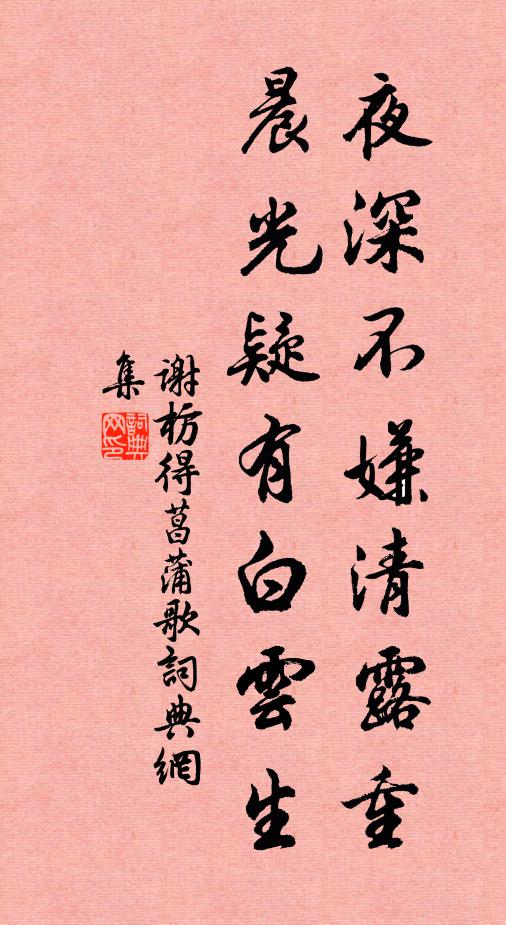 夜深不嫌清露重
晨光疑有白雲生
謝枋得菖蒲歌詞典網
集
詞典
网印